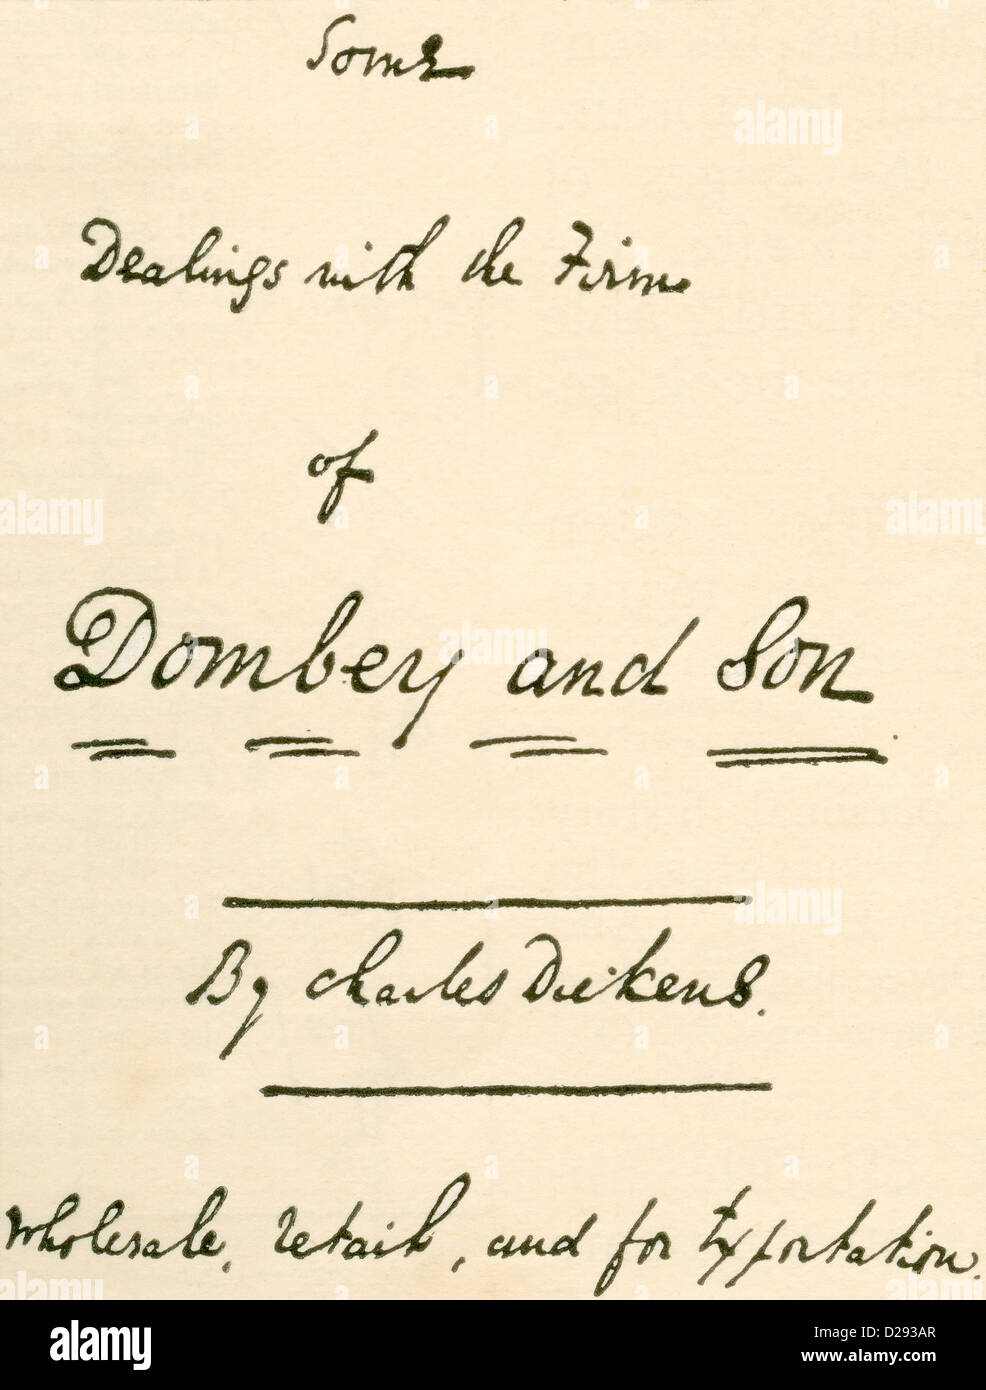 Some
Dealings with the Firm
of
Dombey and Son
By Charles Dickens.
Wholesale, retail, and for Exportation.
alamy
Image ID: D293AR
www.alamy.com